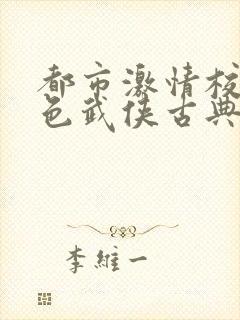 都市激情校
色武侠古典
李维一